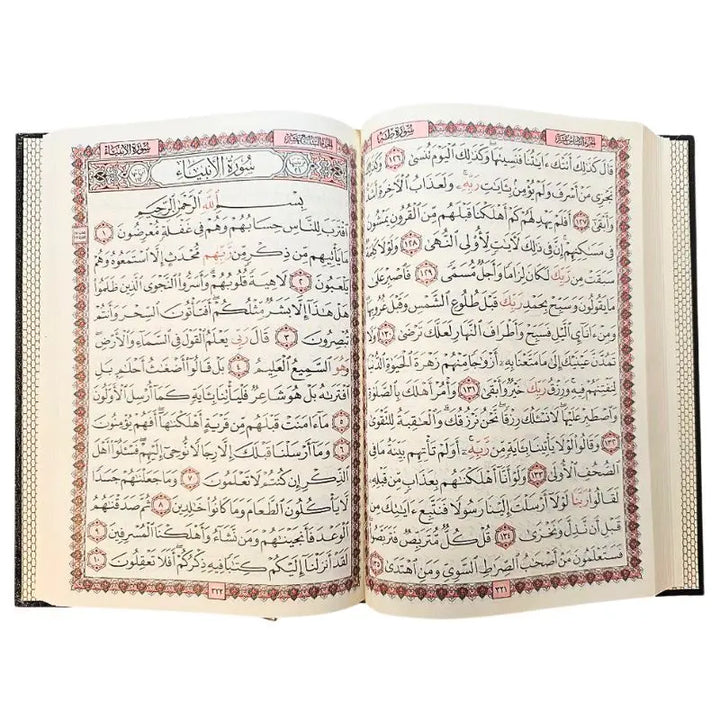 الجزء السادس عشر
سورة طه
قَالَ كَذَٰلِكَ أَتَتْكَ ءَايَٰتُنَا فَنَسِيتَهَا وَكَذَٰلِكَ ٱلْيَوْمَ تُنسَىٰ ١٢٦ وَكَذَٰلِكَ
نَجْزِى مَنْ أَسْرَفَ وَلَمْ يُؤْمِنۢ بِـَٔايَٰتِ رَبِّهِۦ وَلَعَذَابُ ٱلْـَٔاخِرَةِ أَشَدُّ
وَأَبْقَىٰٓ ١٢٧ أَفَلَمْ يَهْدِ لَهُمْ كَمْ أَهْلَكْنَا قَبْلَهُم مِّنَ ٱلْقُرُونِ يَمْشُونَ
فِى مَسَٰكِنِهِمْ إِنَّ فِى ذَٰلِكَ لَـَٔايَٰتٍ لِّأُو۟لِى ٱلنُّهَىٰ ١٢٨ وَلَوْلَا كَلِمَةٌ
سَبَقَتْ مِن رَّبِّكَ لَكَانَ لِزَامًا وَأَجَلٌ مُّسَمًّى ١٢٩ فَٱصْبِرْ عَلَىٰ
مَا يَقُولُونَ وَسَبِّحْ بِحَمْدِ رَبِّكَ قَبْلَ طُلُوعِ ٱلشَّمْسِ وَقَبْلَ غُرُوبِهَا
وَمِنْ ءَانَآئِ ٱلَّيْلِ فَسَبِّحْ وَأَطْرَافَ ٱلنَّهَارِ لَعَلَّكَ تَرْضَىٰ ١٣٠ وَلَا
تَمُدَّنَّ عَيْنَيْكَ إِلَىٰ مَا مَتَّعْنَا بِهِۦٓ أَزْوَٰجًا مِّنْهُمْ زَهْرَةَ ٱلْحَيَوٰةِ ٱلدُّنْيَا
لِنَفْتِنَهُمْ فِيهِ وَرِزْقُ رَبِّكَ خَيْرٌ وَأَبْقَىٰ ١٣١ وَأْمُرْ أَهْلَكَ بِٱلصَّلَوٰةِ
وَٱصْطَبِرْ عَلَيْهَا لَا نَسْـَٔلُكَ رِزْقًا نَّحْنُ نَرْزُقُكَ وَٱلْعَٰقِبَةُ لِلتَّقْوَىٰ
١٣٢ وَقَالُوا۟ لَوْلَا يَأْتِينَا بِـَٔايَةٍ مِّن رَّبِّهِۦٓ أَوَلَمْ تَأْتِهِم بَيِّنَةُ مَا فِى
ٱلصُّحُفِ ٱلْأُولَىٰ ١٣٣ وَلَوْ أَنَّآ أَهْلَكْنَٰهُم بِعَذَابٍ مِّن قَبْلِهِۦ
لَقَالُوا۟ رَبَّنَا لَوْلَآ أَرْسَلْتَ إِلَيْنَا رَسُولًا فَنَتَّبِعَ ءَايَٰتِكَ مِن
قَبْلِ أَن نَّذِلَّ وَنَخْزَىٰ ١٣٤ قُلْ كُلٌّ مُّتَرَبِّصٌ فَتَرَبَّصُوا۟
فَسَتَعْلَمُونَ مَنْ أَصْحَٰبُ ٱلصِّرَٰطِ ٱلسَّوِىِّ وَمَنِ ٱهْتَدَىٰ ١٣٥
٣٢١
الجزء السابع عشر
سورة الأنبياء
سُورَةُ الْأَنْبِيَاءِ
بِسْمِ ٱللَّهِ ٱلرَّحْمَٰنِ ٱلرَّحِيمِ
ٱقْتَرَبَ لِلنَّاسِ حِسَابُهُمْ وَهُمْ فِى غَفْلَةٍ مُّعْرِضُونَ ١
مَا يَأْتِيهِم مِّن ذِكْرٍ مِّن رَّبِّهِم مُّحْدَثٍ إِلَّا ٱسْتَمَعُوهُ وَهُمْ
يَلْعَبُونَ ٢ لَاهِيَةً قُلُوبُهُمْ وَأَسَرُّوا۟ ٱلنَّجْوَى ٱلَّذِينَ ظَلَمُوا۟
هَلْ هَٰذَآ إِلَّا بَشَرٌ مِّثْلُكُمْ أَفَتَأْتُونَ ٱلسِّحْرَ وَأَنتُمْ
تُبْصِرُونَ ٣ قَالَ رَبِّى يَعْلَمُ ٱلْقَوْلَ فِى ٱلسَّمَآءِ وَٱلْأَرْضِ
وَهُوَ ٱلسَّمِيعُ ٱلْعَلِيمُ ٤ بَلْ قَالُوٓا۟ أَضْغَٰثُ أَحْلَٰمٍۭ بَلِ
ٱفْتَرَىٰهُ بَلْ هُوَ شَاعِرٌ فَلْيَأْتِنَا بِـَٔايَةٍ كَمَآ أُرْسِلَ ٱلْأَوَّلُونَ
٥ مَآ ءَامَنَتْ قَبْلَهُم مِّن قَرْيَةٍ أَهْلَكْنَٰهَآ أَفَهُمْ يُؤْمِنُونَ
٦ وَمَآ أَرْسَلْنَا قَبْلَكَ إِلَّا رِجَالًا نُّوحِىٓ إِلَيْهِمْ فَسْـَٔلُوٓا۟ أَهْلَ
ٱلذِّكْرِ إِن كُنتُمْ لَا تَعْلَمُونَ ٧ وَمَا جَعَلْنَٰهُمْ جَسَدًا
لَّا يَأْكُلُونَ ٱلطَّعَامَ وَمَا كَانُوا۟ خَٰلِدِينَ ٨ ثُمَّ صَدَقْنَٰهُمُ
ٱلْوَعْدَ فَأَنجَيْنَٰهُمْ وَمَن نَّشَآءُ وَأَهْلَكْنَا ٱلْمُسْرِفِينَ ٩
لَقَدْ أَنزَلْنَآ إِلَيْكُمْ كِتَٰبًا فِيهِ ذِكْرُكُمْ أَفَلَا تَعْقِلُونَ ١٠
٣٢٢